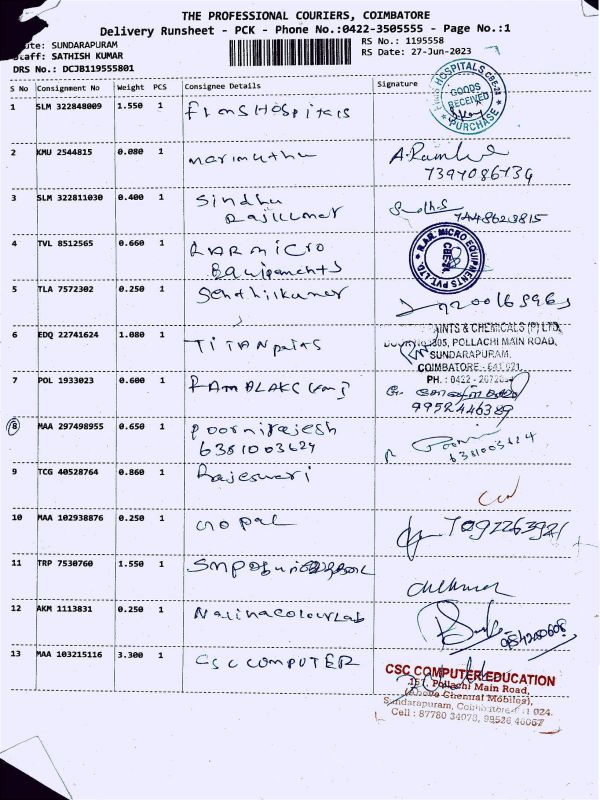 THE PROFESSIONAL COURIERS, COIMBATORE
Delivery Runsheet - PCK - Phone No.:0422-3505555 - Page No.:1
SUNDARAPURAM
RS No.: 1195558
Staff: SATHISH KUMAR
RS Date: 27-Jun-2023
DRS No.: DCJB119555801
S No Consignment No Weight PCS Consignee Details Signature
1 SLM 322848009 1.550 1
HOSPITALS CBE-24
GOODS RECEIVED
PURCHASE
2 KMU 2544815 0.080 1 marimuthu
7397086734
3 SLM 322811030 0.400 1 Sindhu
Rajkumar
7448623815
4 TVL 8512565 0.660 1 RAR micro
Equipments
R.A.R. MICRO EQUIPMENTS PVT. LTD.
CBE-24
5 TLA 7572302 0.250 1 Senthilkumar
6 EDQ 22741624 1.080 1 TITAN paints
AINTS & CHEMICALS (P) LTD,
305, POLLACHI MAIN ROAD,
SUNDARAPURAM,
COIMBATORE - 641 021.
PH. : 0422 -
7 POL 1933023 0.600 1
9952446389
8 MAA 297498955 0.650 1 poornirajesh
6381003624
6381003624
9 TCG 40528764 0.860 1 Rajeswari
10 MAA 102938876 0.250 1 Gopal
7092263921
11 TRP 7530760 1.550 1
12 AKM 1113831 0.250 1 Nalinacolourlab
13 MAA 103215116 3.300 1 CSC COMPUTER
CSC COMPUTER EDUCATION
Pollachi Main Road,
(Above Chennai Mobiles),
Sundarapuram, Coimbatore
Cell : 87780 34078,